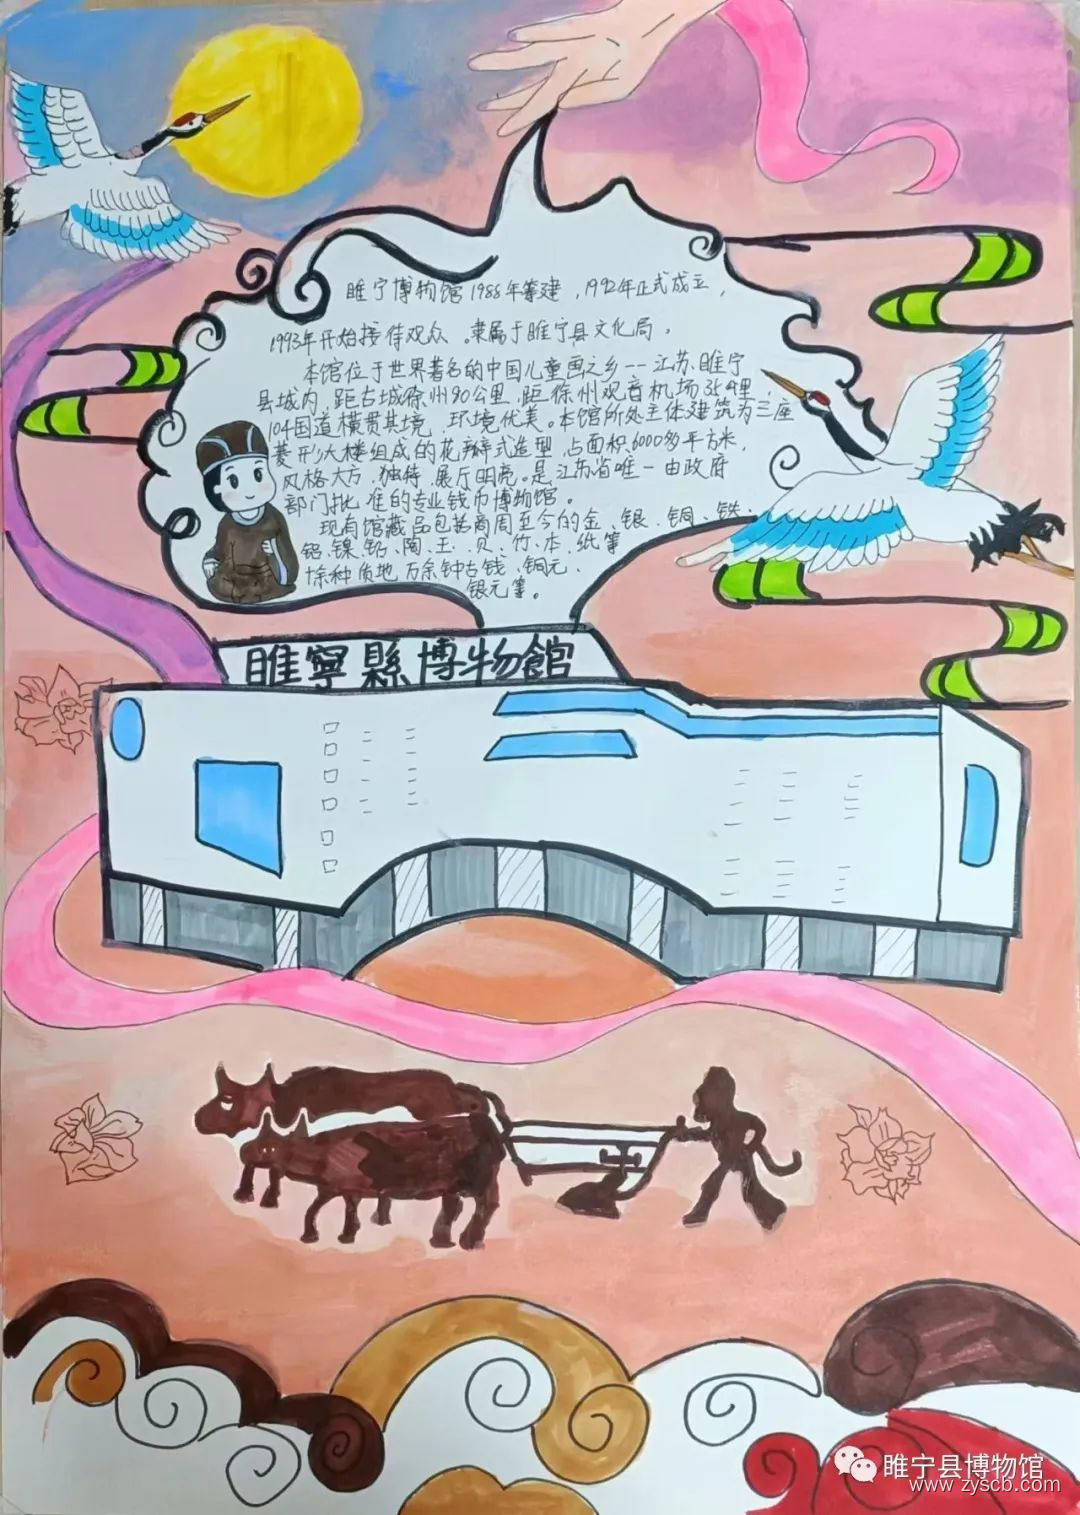 睢宁博物馆1988年筹建，1992年正式成立，
1993年开始接待观众。隶属于睢宁县文化局。
本馆位于世界著名的中国儿童画之乡--江苏睢宁
县城内，距古城徐州90公里，距徐州观音机场35.4里，
104国道横贯其境，环境优美。本馆所处主体建筑为三座
菱形大楼组成的花瓣式造型，占面积6000多平方米，
风格大方，独特，展厅明亮。是江苏省唯一由政府
部门批准的专业钱币博物馆。
现有馆藏品包括商周至今的金、银、铜、铁、
铝、镍、铅、陶、玉、贝、竹、木、纸等
十余种质地万余钟古钱、铜元、
银元等。
睢寧縣博物館
睢宁县博物馆
www.zyscb.com